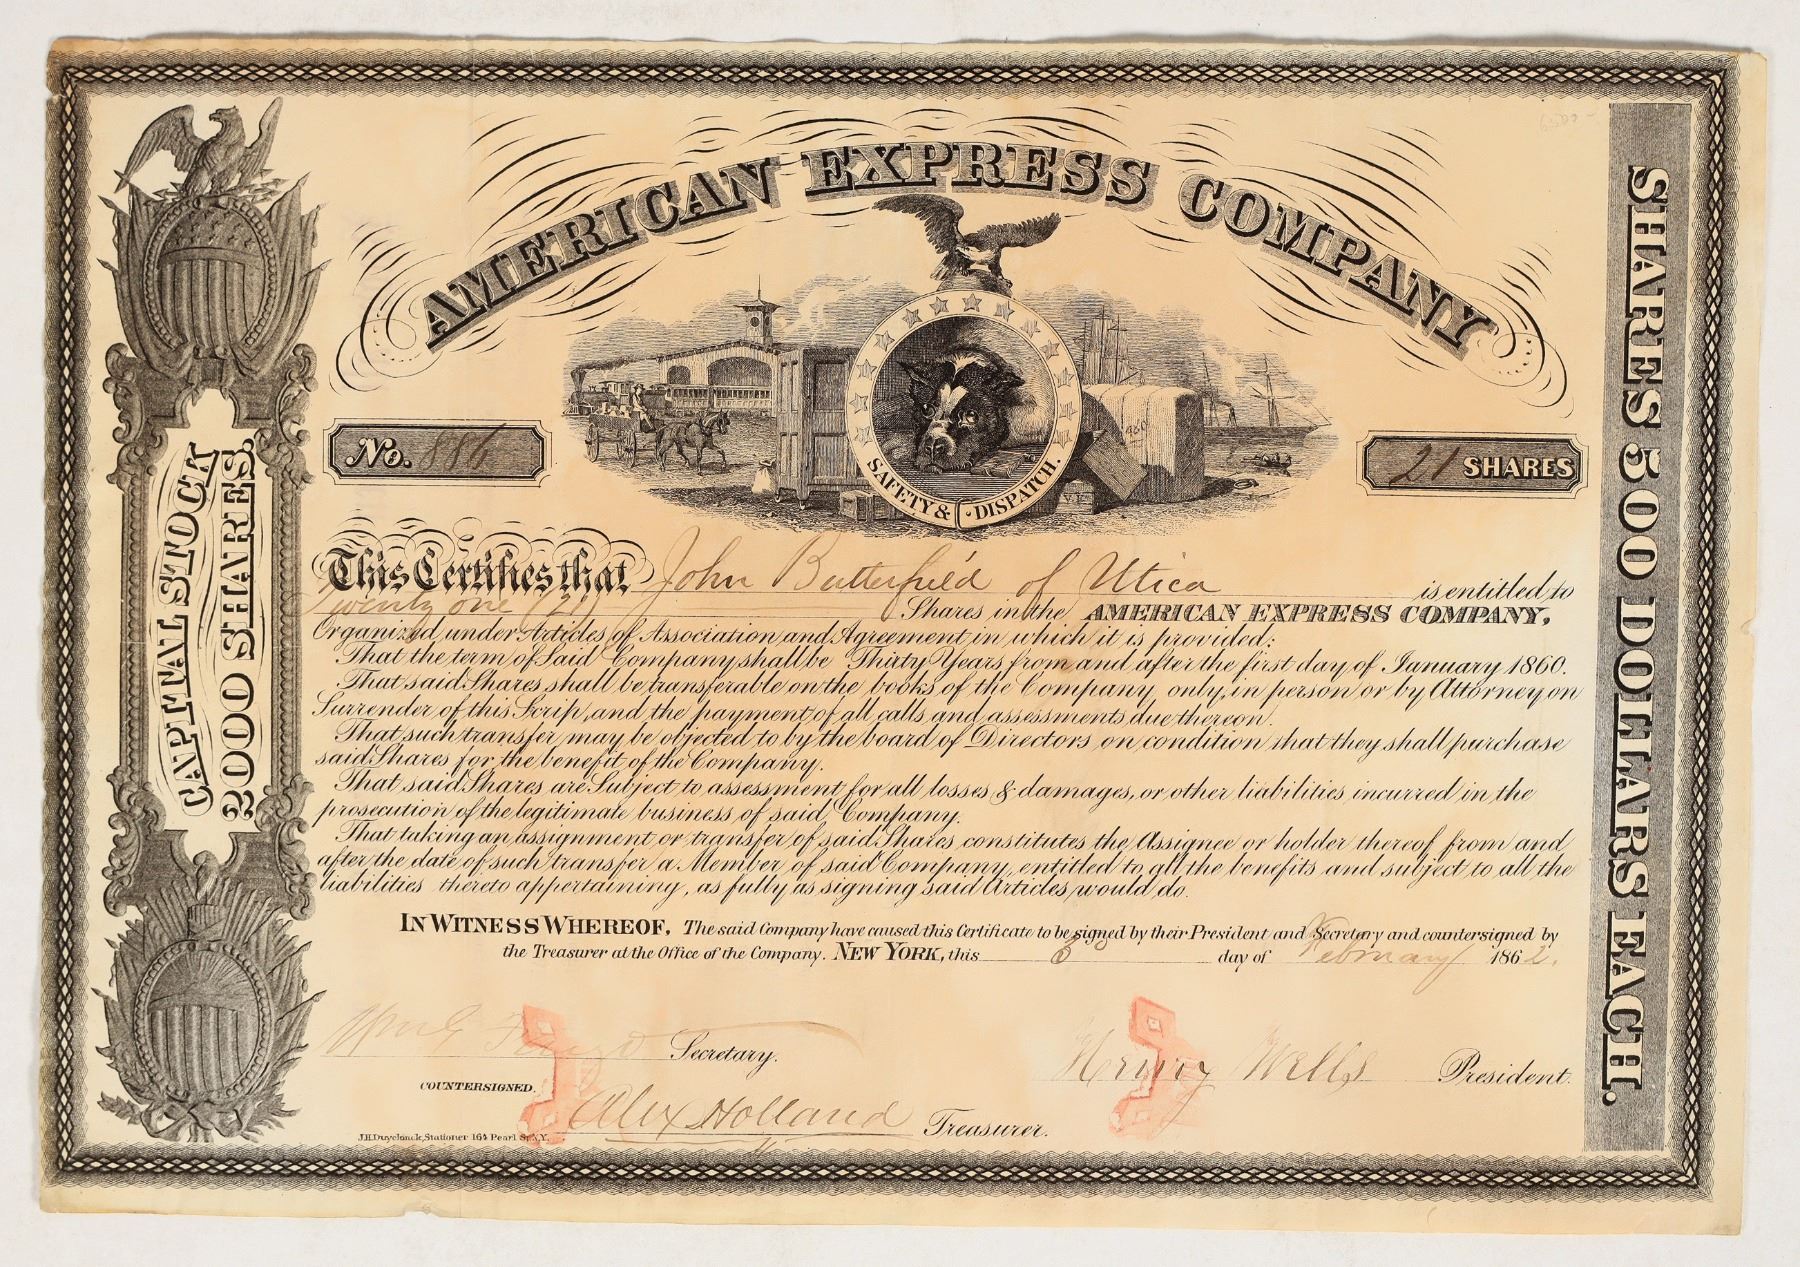 AMERICAN EXPRESS COMPANY
SAFETY & DISPATCH.
No. 886
21 SHARES
CAPITAL STOCK
2000 SHARES.
SHARES 500 DOLLARS EACH.
This Certifies that John Butterfield of Utica is entitled to
Twenty one (21) Shares in the AMERICAN EXPRESS COMPANY,
Organized under Articles of Association and Agreement in which it is provided:
That the term of Said Company shall be Thirty Years from and after the first day of January 1860.
That said Shares shall be transferable on the books of the Company only, in person or by Attorney on
Surrender of this Scrip, and the payment of all calls and assessments due thereon.
That such transfer may be objected to by the board of Directors on condition that they shall purchase
said Shares for the benefit of the Company.
That said Shares are Subject to assessment for all losses & damages, or other liabilities incurred in the
prosecution of the legitimate business of said Company.
That taking an assignment or transfer of said Shares constitutes the Assignee or holder thereof from and
after the date of such transfer a Member of said Company, entitled to all the benefits and subject to all the
liabilities thereto appertaining, as fully as signing said Articles would do.
IN WITNESS WHEREOF, The said Company have caused this Certificate to be signed by their President and Secretary and countersigned by
the Treasurer at the Office of the Company. NEW YORK, this 3d day of February 1862.
Secretary.
Henry Wells President.
COUNTERSIGNED.
Alex Holland Treasurer.
J.H. Duyckinck, Stationer 164 Pearl St. N.Y.